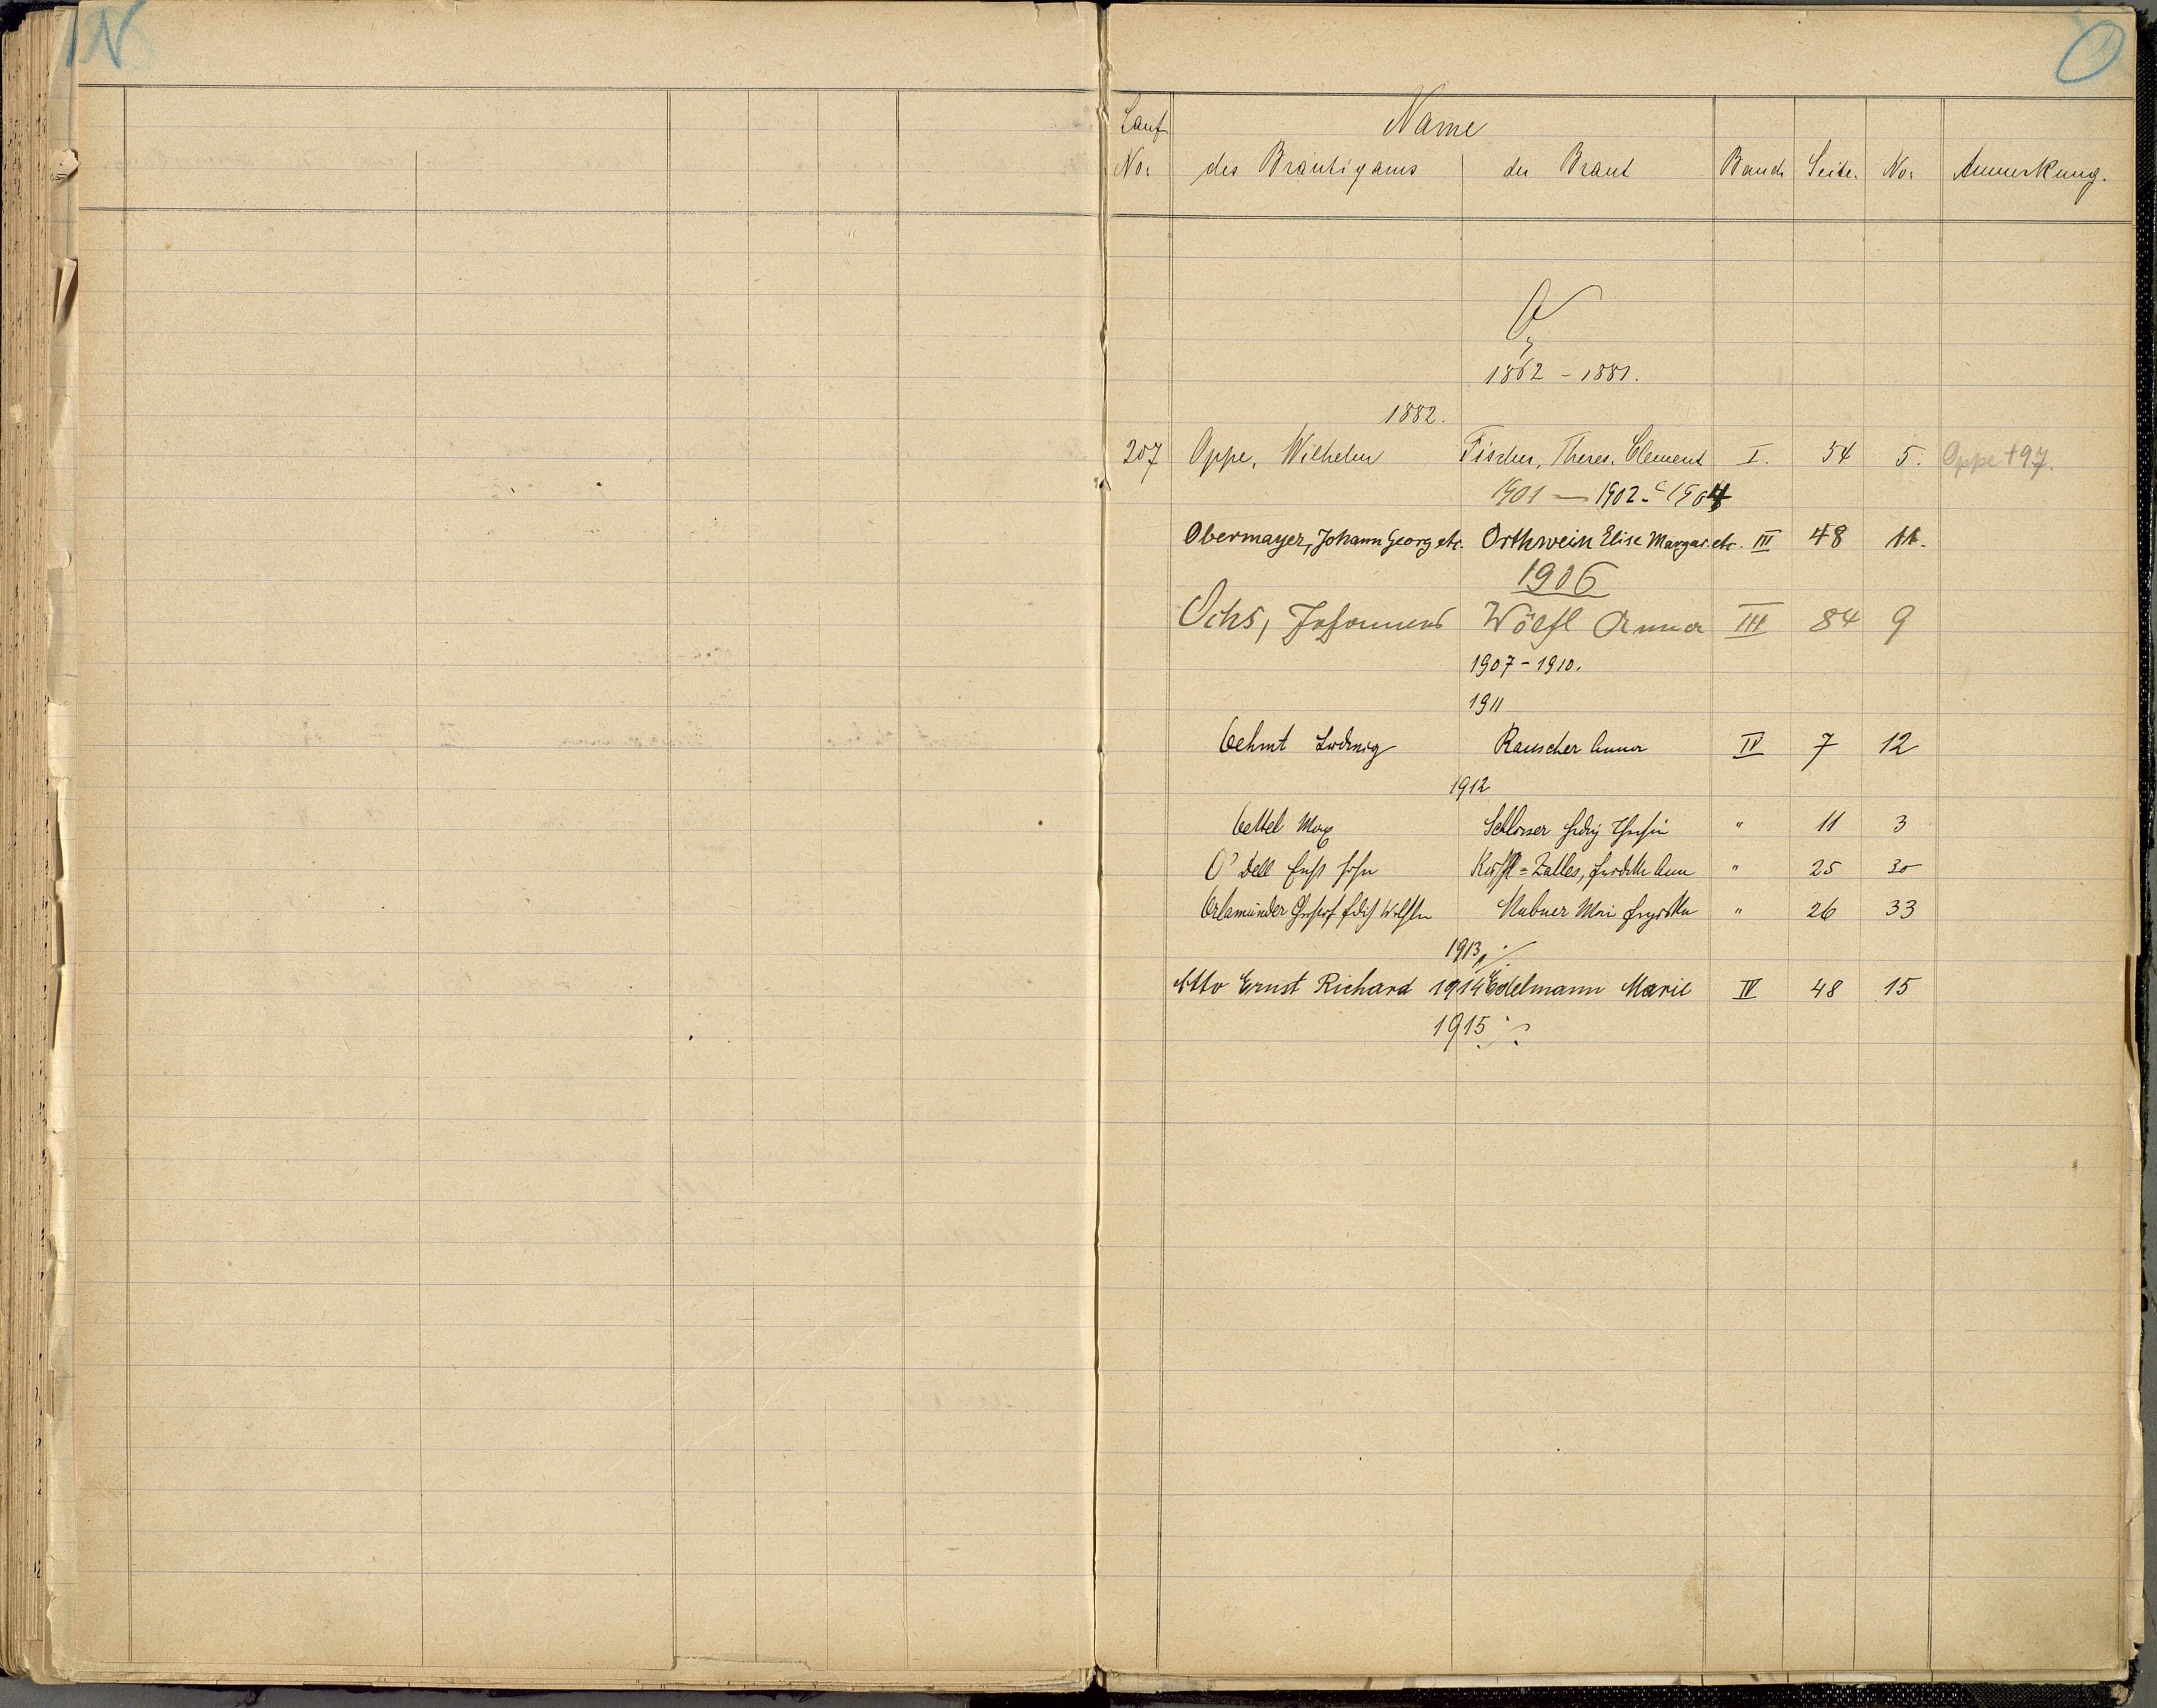 N
O
Lauf Name
No. des Bräutigams der Braut Band Seite. No. Anmerkung.
O
1862 - 1881.
1882.
207 Oppe, Wilhelm Fischer, Theres. Clement I. 54 5. Oppe † 97.
1901 — 1902 - 1904
Obermayer, Johann Georg etc. Orthwein Elise Margar. etc. III 48 11.
1906
Ochs, Johannes Wölfl Anna III 84 9
1907 - 1910.
1911
Oehmt Ludwig Rauscher Anna IV 7 12
1912
Oettel Max Schlosser " 11 3
O'Dell John " 25 30
Orlamünder " 26 33
1913 ./.
Otto Ernst Richard 1914 Edelmann Marie IV 48 15
1915 ./.